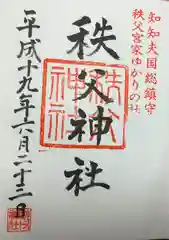 知知夫国総鎮守
秩父宮家ゆかりの社
秩父神社
秩父神社
平成十九年六月二十三日